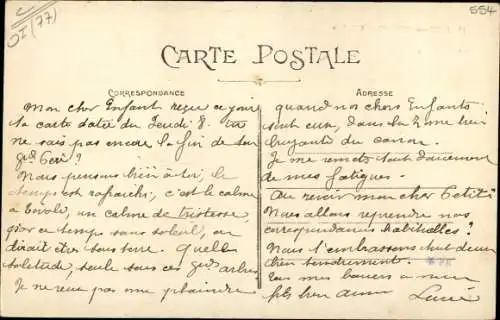 OI (77)
554
CARTE POSTALE
CORRESPONDANCE
ADRESSE
Mon cher Enfant reçu ce jour
ta carte datée du Jeudi 8.
ne sais pas encore la fin de
Nous pensons bien à toi, le
temps est rafraichi, c'est le calme
un calme de tristesse
ce temps sans soleil, on
dirait être sous terre. Quelle
solitude, seule sous ces gds arbres
Je ne veux pas me plaindre
quand nos chers Enfants
sont eux, dans la
bruyante du canon.
Je me remets tout doucement
de mes fatigues.
Au revoir mon cher Petit
Nous allons reprendre nos
correspondances habituelles?
Nous t'embrassons tout deux
bien tendrement.
mes baisers